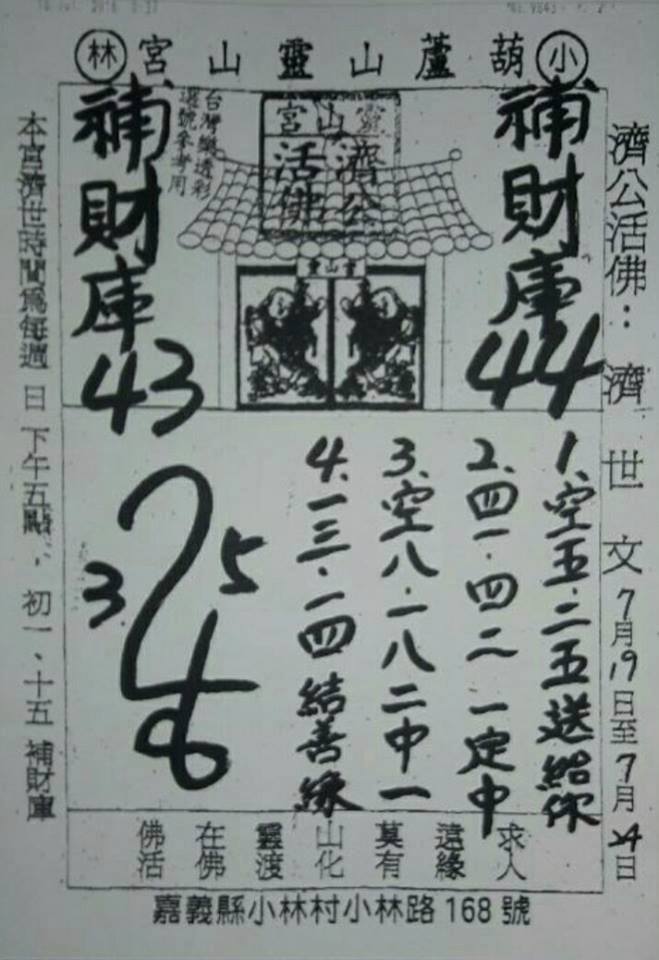 小葫蘆山靈山宮林
濟公活佛：濟世文 7月19日至7月24日
補財庫 44
靈山宮
濟公活佛
台灣樂透彩
選號參考用
補財庫 43
1、空五·二五送給你
2、四一·四二一定中
3、空八·一八二中一
4、一三·一四結善緣
3 5
本宮濟世時間為每週日下午五點，初一、十五補財庫
佛在靈山莫遠求
活佛渡化有緣人
嘉義縣小林村小林路168號